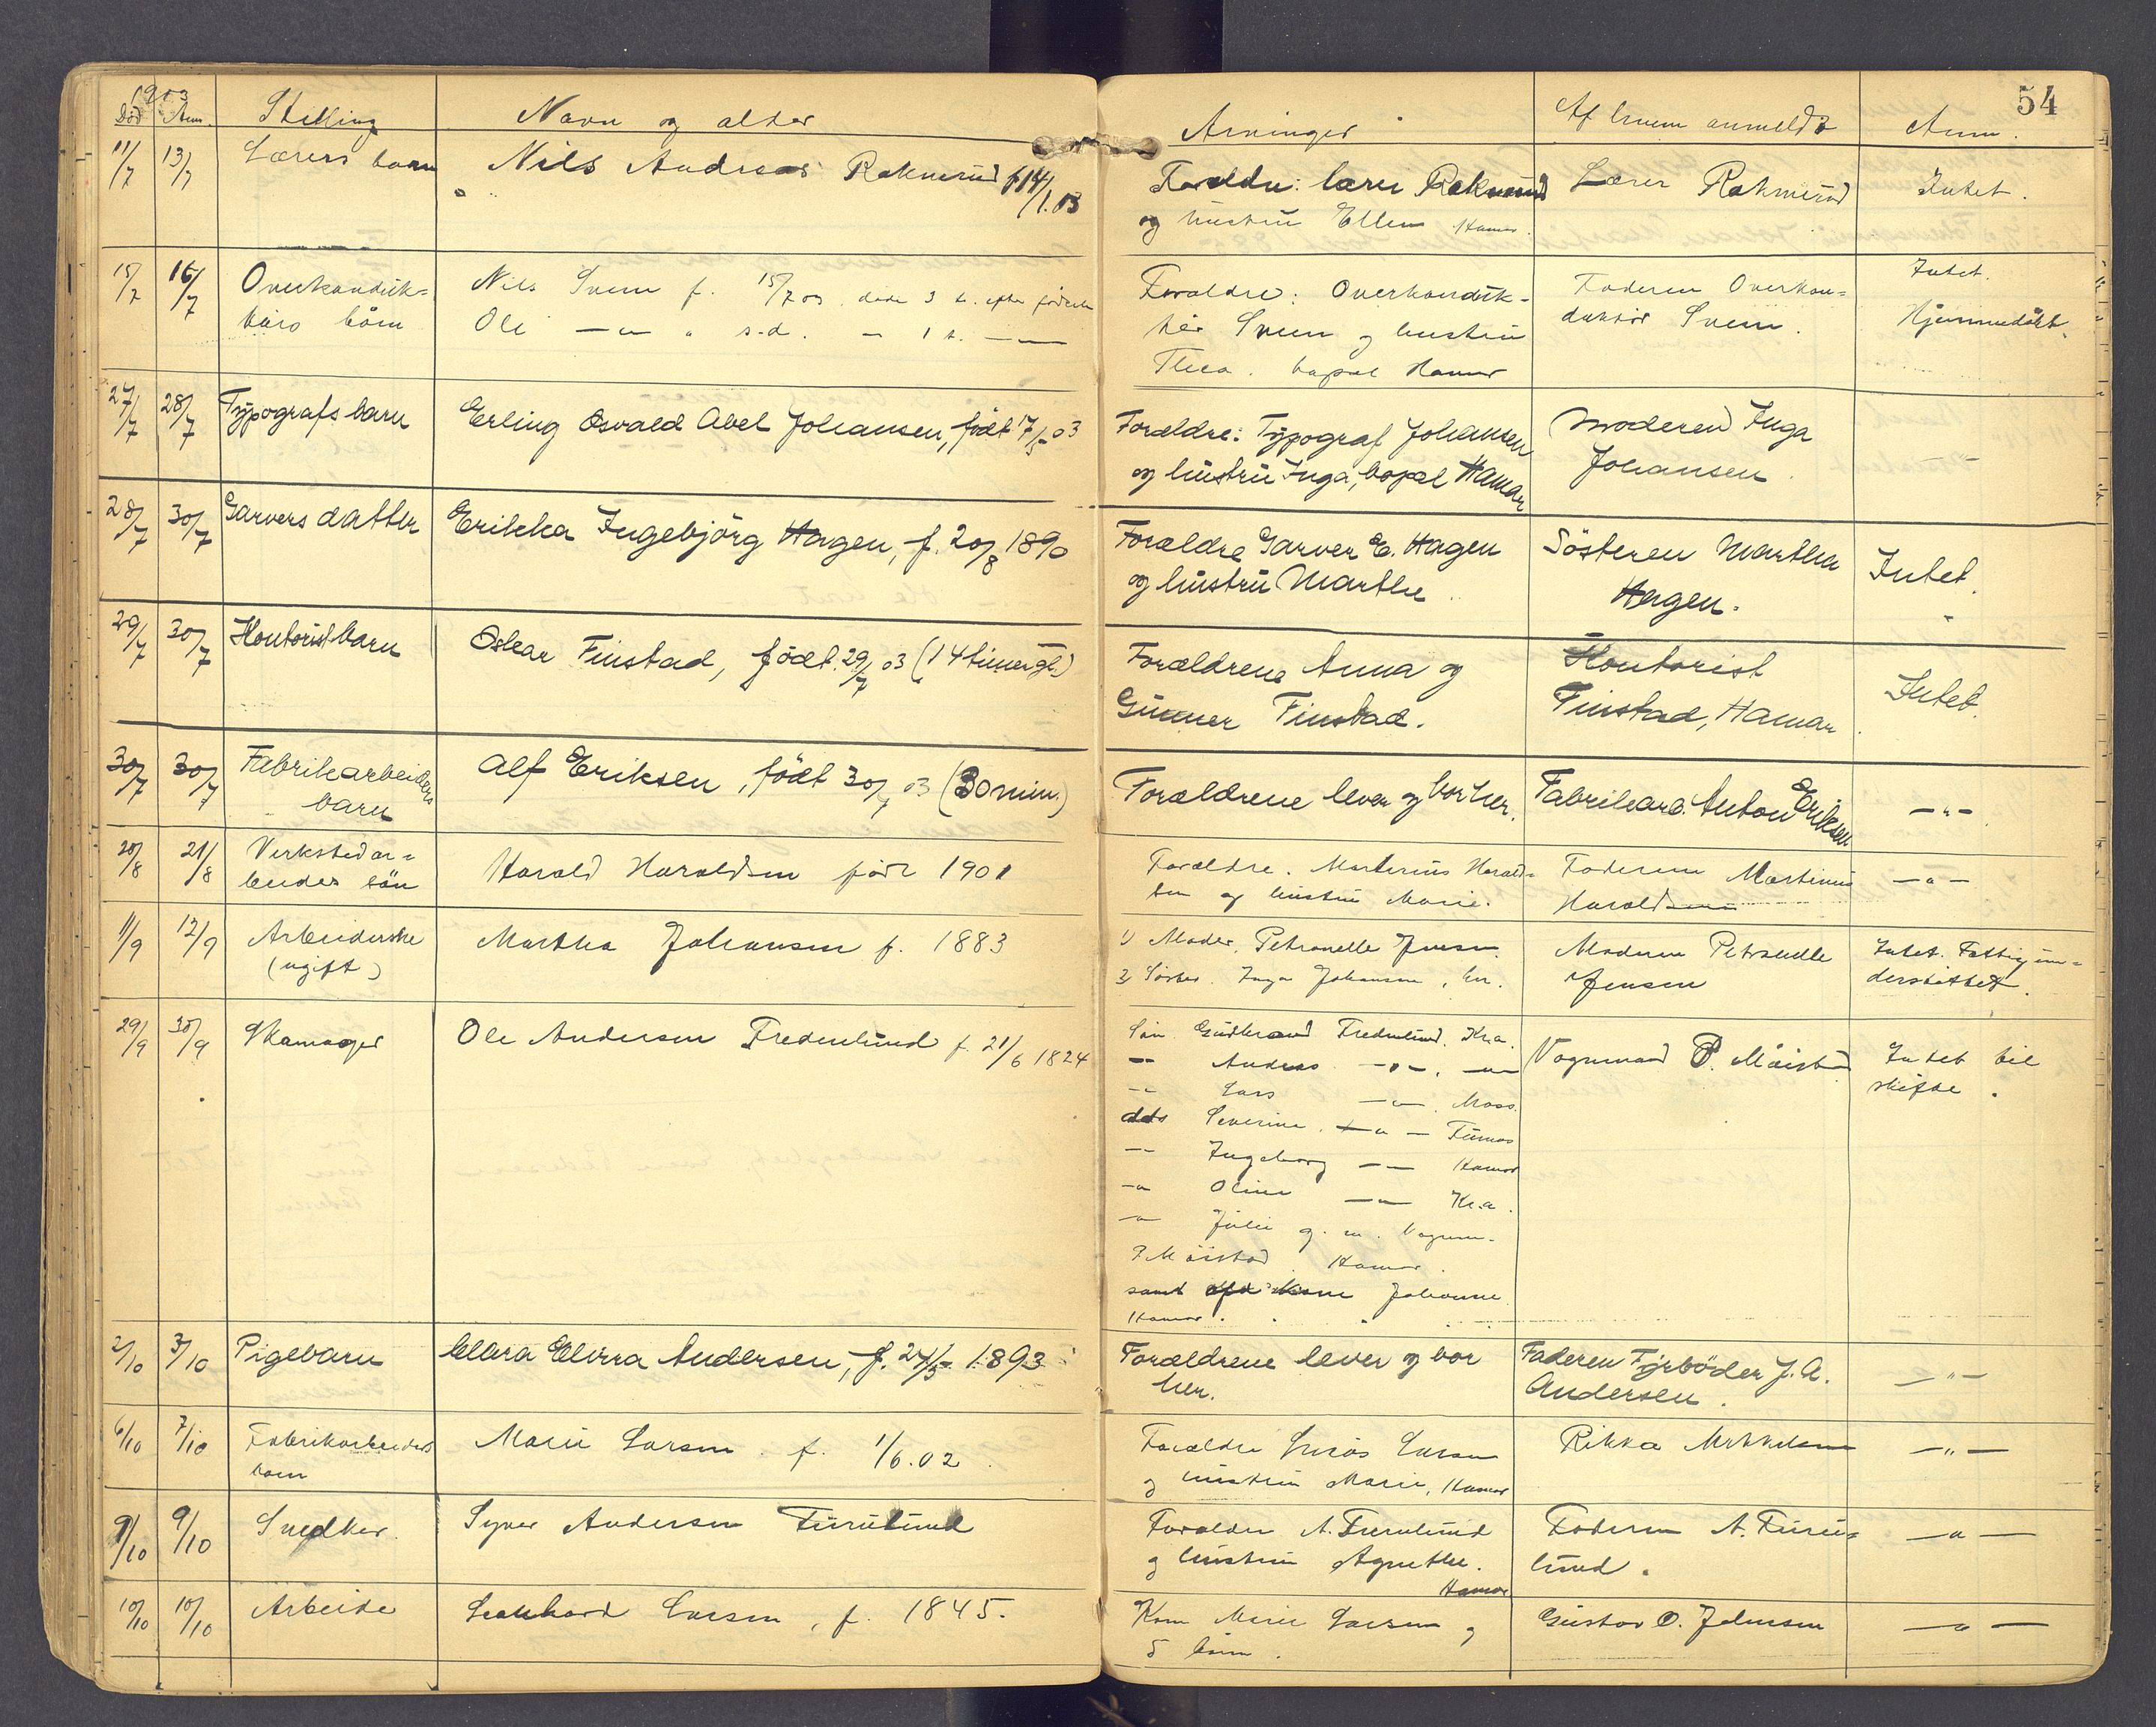 1903
54
Död Anm. Stilling Navn og alder Arvinger Af hvem anmeldt Anm.
11/7 13/7 Lærers barn Nils Andreas Raknerud f 14/1.03 Forældre: lærer Raknerud Lærer Raknerud Intet.
og hustru Ellen Hamar.
15/7 16/7 Overkonduk- Nils Sveen f. 15/7 03 døde 3 t. efter fødselen Forældre: Overkonduk- Faderen Overkon- Intet.
törs börn Ole — " — " s.d. — 1 t. — " — tör Sveen og hustru duktör Sveen. Hjemmedöbt.
Thea. bopæl Hamar
27/7 28/7 Typografs barn Erling Osvald Abel Johansen, födt 17/5 03 Forældre: Typograf Johansen Moderen Inga — " —
og hustru Inga, bopæl Hamar Johansen.
28/7 30/7 Garvers datter Erikka Ingebjörg Hagen, f. 20/8 1890 Forældre Garver E. Hagen Sösteren Martha Intet.
og hustru Marthe. Hagen.
29/7 30/7 Kontorist barn Oskar Finstad, födt. 29/7 03 (14 timer gl.) Forældrene Anna og Kontorist Intet.
Gunner Finstad. Finstad, Hamar.
30/7 30/7 Fabrikarbeiders Alf Eriksen, födt 30/7 03 (30 min.) Forældrene lever og bor her. Fabrikarb. Anton Eriksen — " —
barn
20/8 21/8 Verkstedar- Harald Haraldsen född 1901 Forældre. Martinius Harald- Faderen Martinius — " —
beiders sön sen og hustru Marie. Haraldsen
11/9 12/9 Arbeiderske Martha Johansen f. 1883 1) Moder. Petronelle Jensen. Moderen Petronelle Intet. Fattigun-
(ugift) 2) Söster. Inga Johansen, her. Jensen derstöttet.
29/9 30/9 Skomager Ole Andersen Fredenlund f. 21/6 1824 Sön Gudbrand Fredenlund. Kr.a. Vognmand P. Möistad Intet til
— Andreas — " — . — " — skifte.
— Lars — " — . Moss.
datr Severine. — " — Furnes
— " Ingeborg — " — Hamar
— " Oline — " — Kr.a.
— " Julie g. m. Vognm.
P. Möistad. Hamar.
samt Kone Johanne
Hamar.
2/10 3/10 Pigebarn Clara Elvira Andersen, f. 24/5 1893 Forældrene lever og bor Faderen Fyrböder J. A. — " —
her. Andersen.
6/10 7/10 Fabrikarbeiders Marie Larsen. f. 1/6.02. Forældre Larsen Rikka Mikkelsen — " —
barn og hustru Marie, Hamar
9/10 9/10 Snedker. Syver Andersen Furulund Forældre A. Furulund Faderen A. Furu- — " —
og hustru Agnethe. lund.
Hamar
10/10 10/10 Arbeider Leonhard Larsen, f. 1845. Kone Marie Larsen og Gustav O. Johnsen — " —
5 börn.